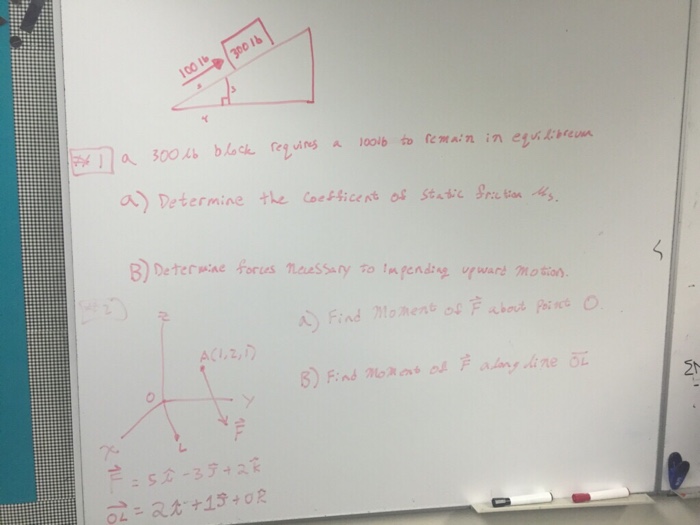 100 lb
300 lb
3
4
#1 a 300 lb block requires a 100lb to remain in equilibreum
a) Determine the coefficent of static friction μs.
B) Determine forces necessary to impending upward motion.
#2)
a) Find Moment of F⃗ about Point O.
B) Find Moment of F⃗ along line O̅L̅
Z
A(1,2,1)
O
Y
F⃗
X
L
F⃗ = 5î - 3ĵ + 2k̂
O⃗L = 2î + 1ĵ + 0k̂